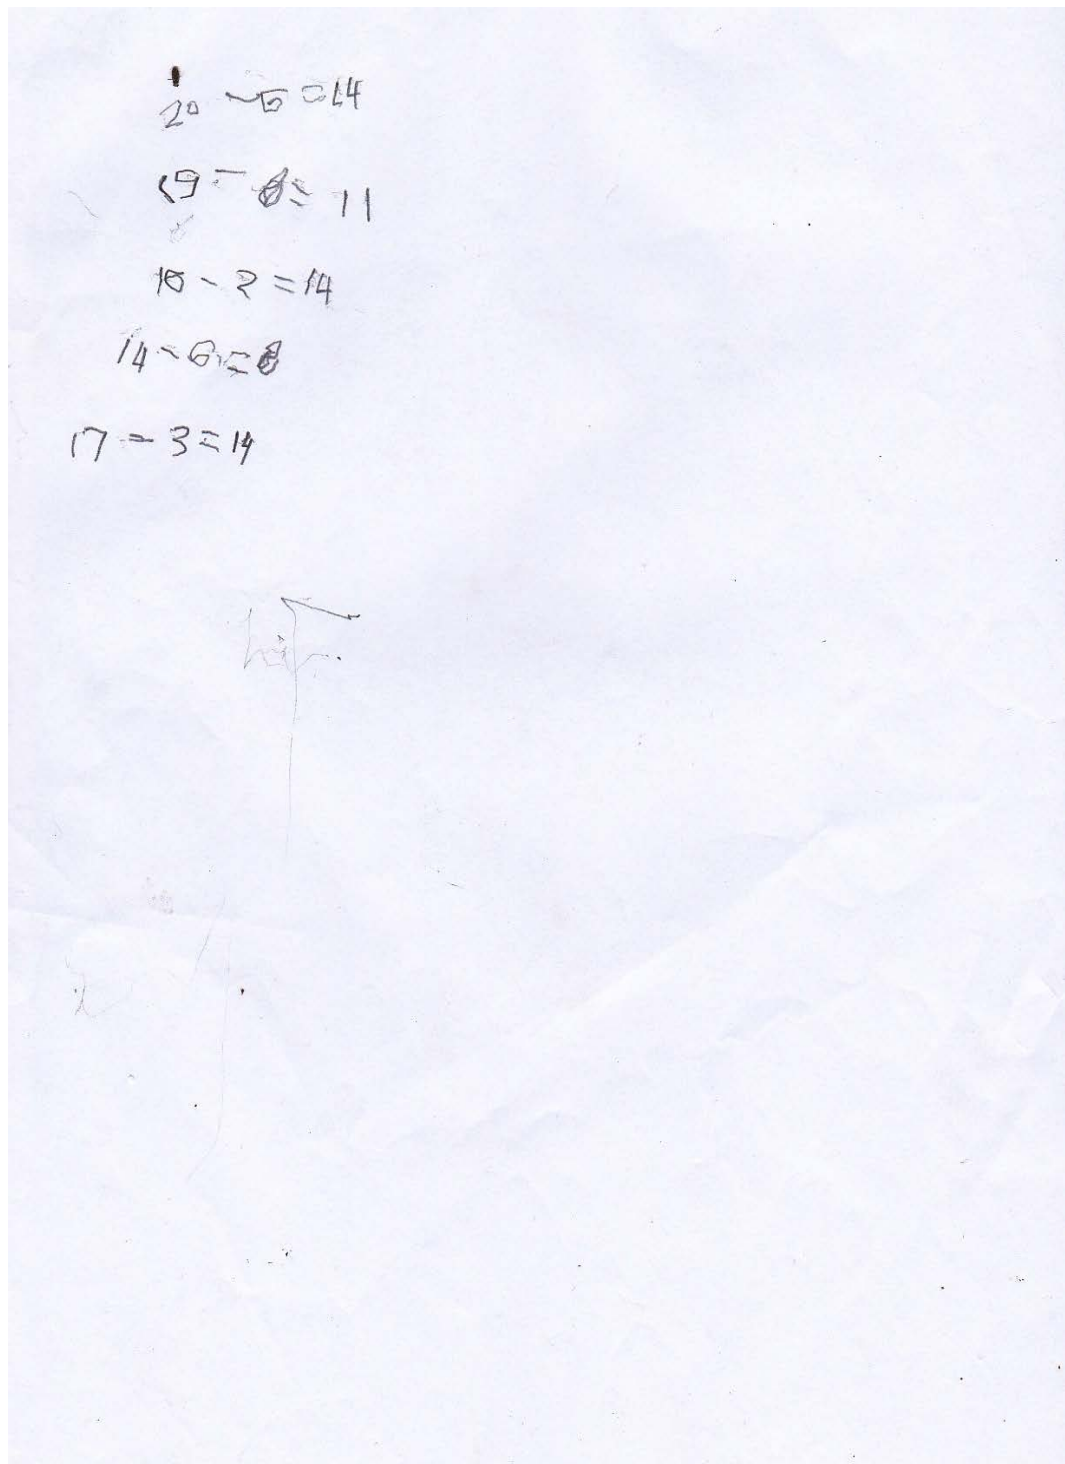 20 - 6 = 14
19 - 8 = 11
16 - 2 = 14
14 - 6 = 8
17 - 3 = 14